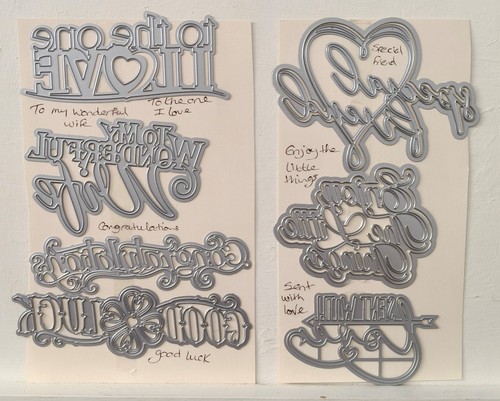 to the one
I LOVE
To my Wonderful
Wife
To the one
I love
TO MY
WONDERFUL
Wife
Congratulations
Congratulations
GOOD LUCK
good luck
Special
friend
special
friend
Enjoy the
little
things
Enjoy
the little
things
Sent
with
love
SENT WITH
love